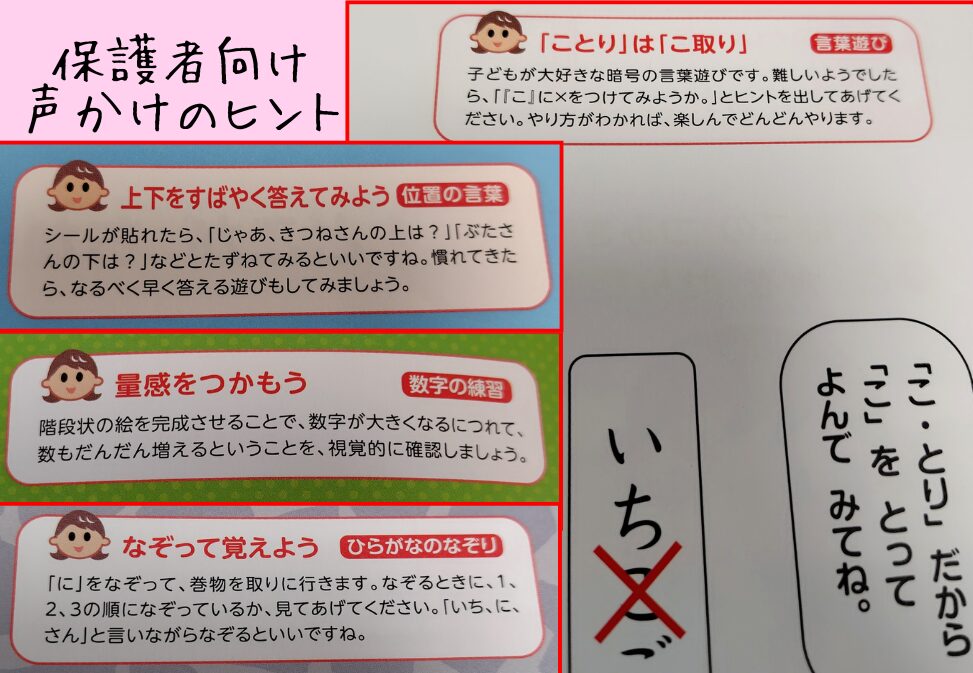 保護者向け
声かけのヒント
「ことり」は「こ取り」
言葉遊び
子どもが大好きな暗号の言葉遊びです。難しいようでした
ら、「『こ』に×をつけてみようか。」とヒントを出してあげてく
ださい。やり方がわかれば、楽しんでどんどんやります。
上下をすばやく答えてみよう
位置の言葉
シールが貼れたら、「じゃあ、きつねさんの上は？」「ぶたさ
んの下は？」などとたずねてみるといいですね。慣れてきた
ら、なるべく早く答える遊びもしてみましょう。
量感をつかもう
数字の練習
階段状の絵を完成させることで、数字が大きくなるにつれて、
数もだんだん増えるということを、視覚的に確認しましょう。
なぞって覚えよう
ひらがなのなぞり
「に」をなぞって、巻物を取りに行きます。なぞるときに、1、
2、3の順になぞっているか、見てあげてください。「いち、に、
さん」と言いながらなぞるといいですね。
「こ・とり」だから
「こ」を とって
よんで みてね。
いちこご